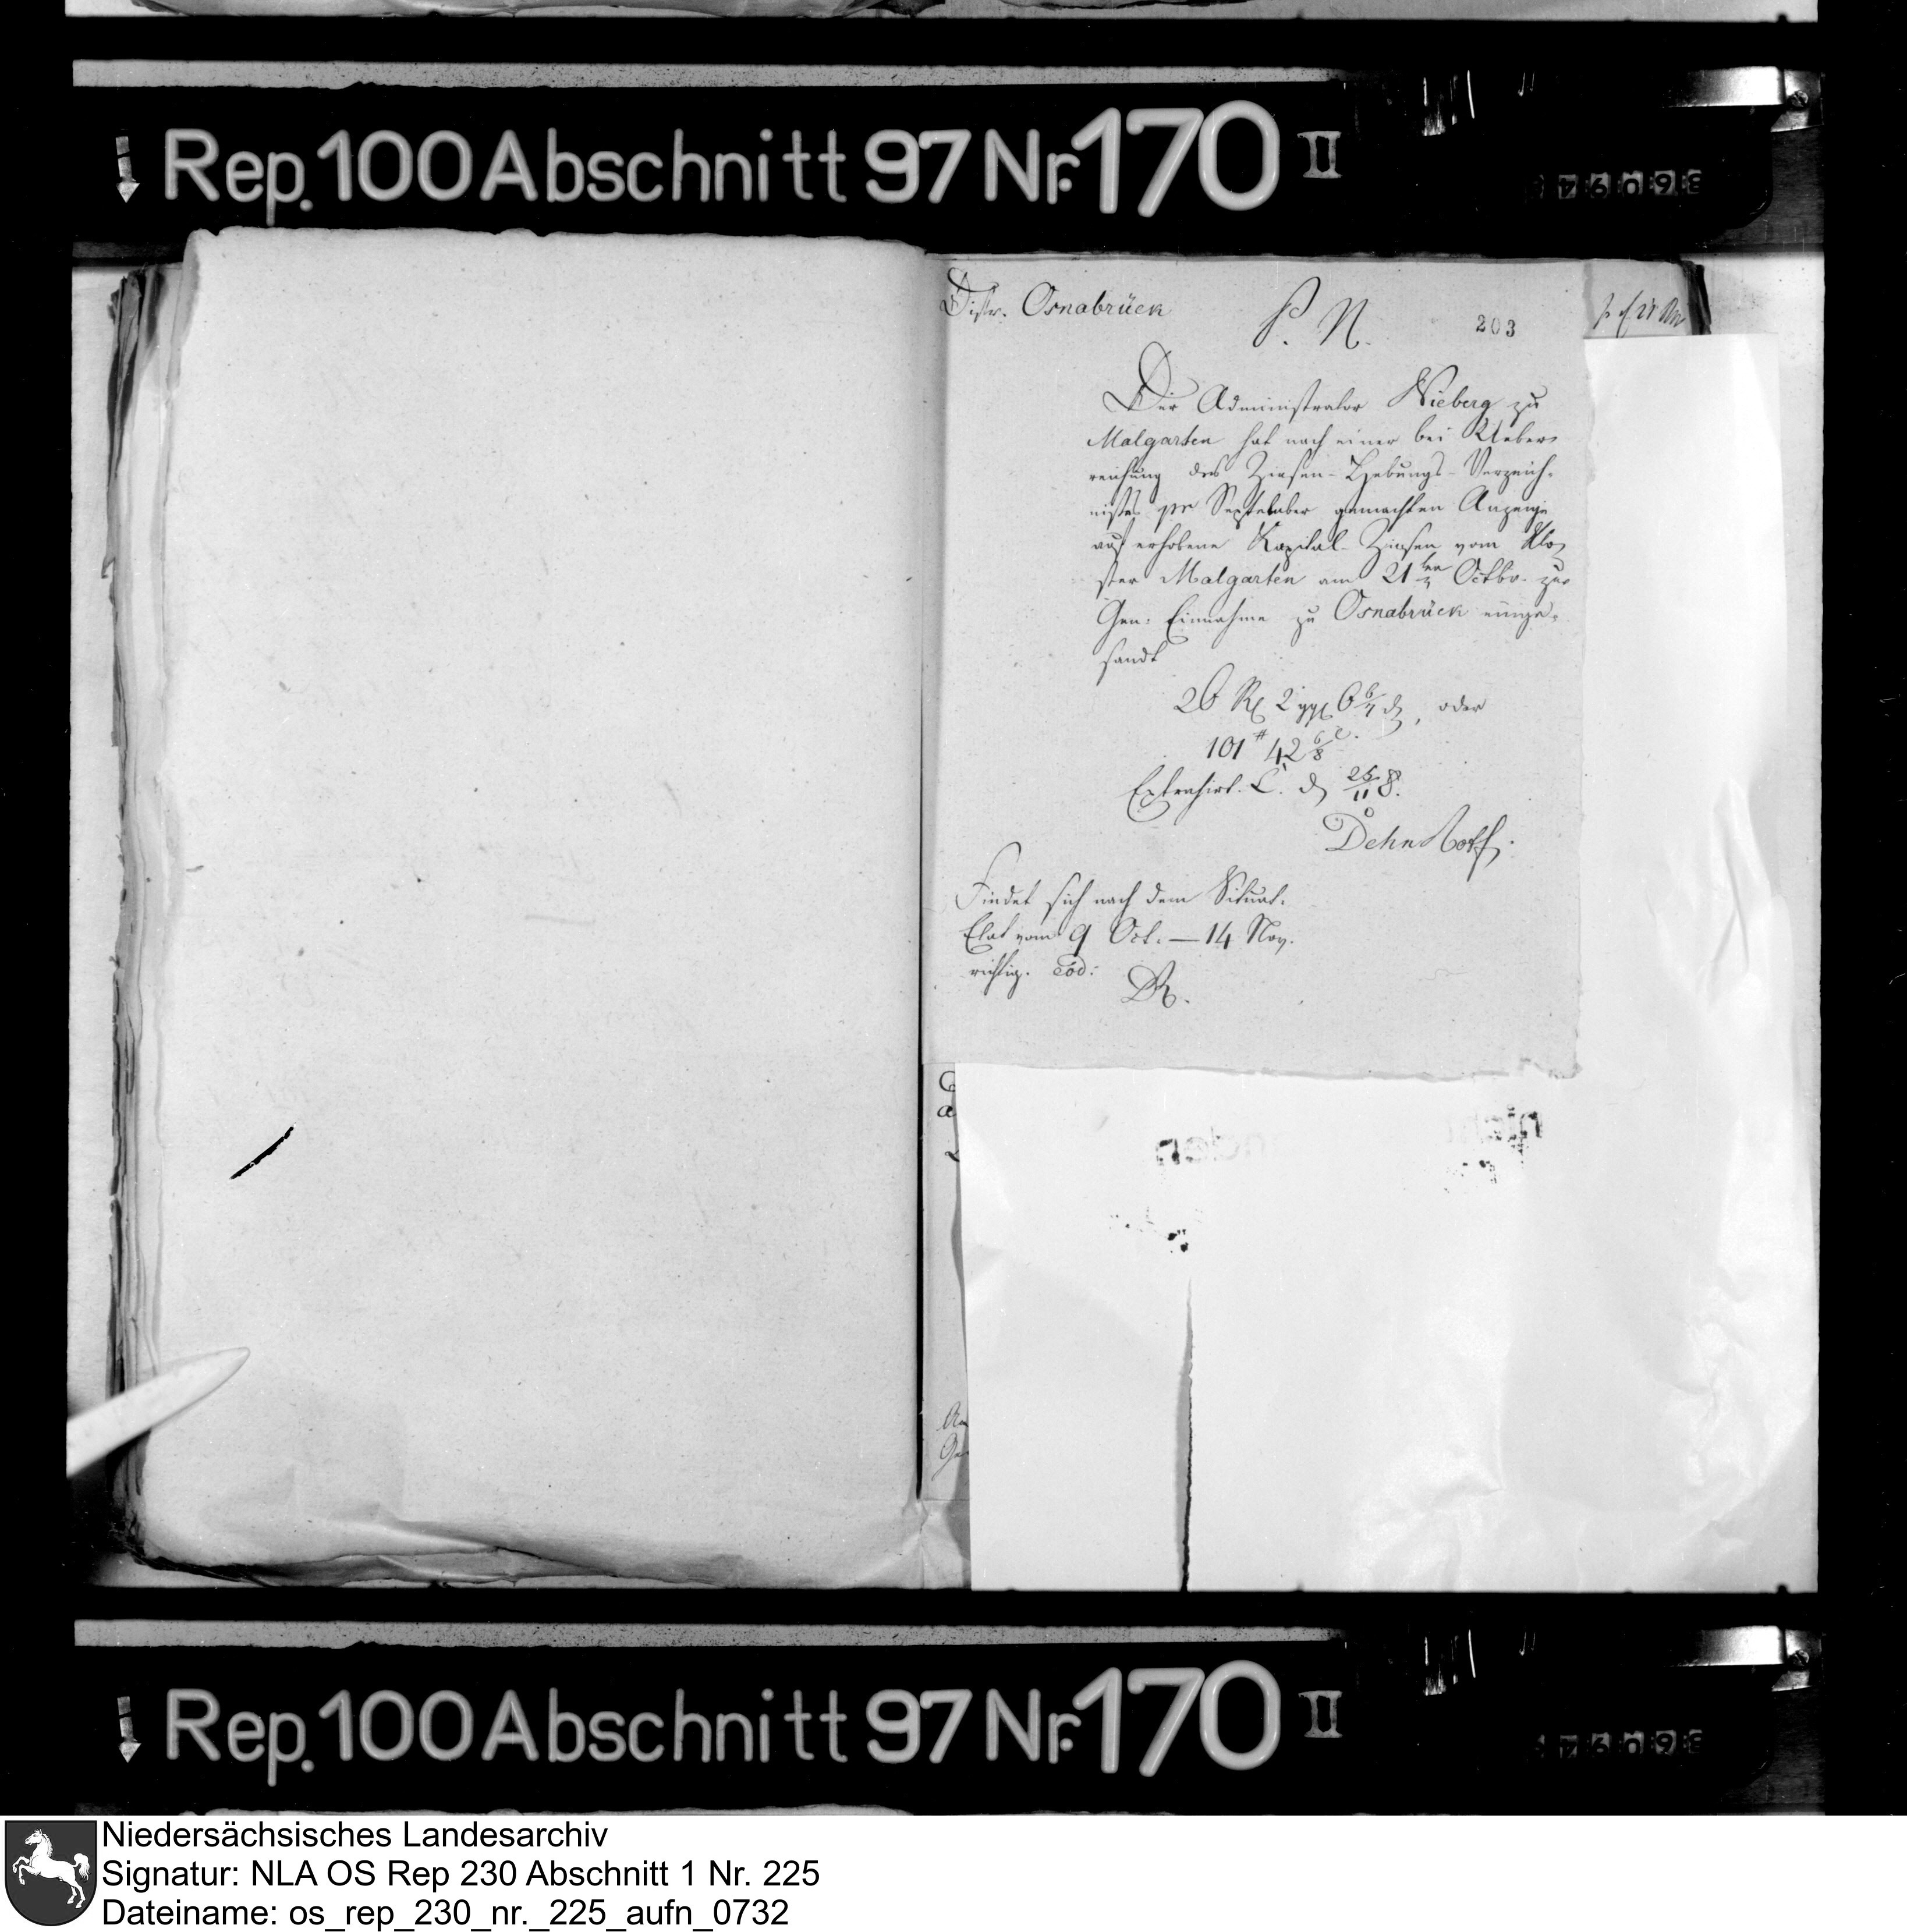 Rep. 100 Abschnitt 97 Nr. 170 II
Distr. Osnabrück
P. N.
203
Der Administrator Nieberg zu
Malgarten hat nach einer bei Ueber-
reichung des Zinsen-Hebungs-Verzeich-
nisses pr September gemachten Anzeige
auf erhobene Kapital-Zinsen vom Klo-
ster Malgarten am 21ten Octbr. zur
Gen: Einnahme zu Osnabrück einge-
sandt
26 Rt 2 ggr 6 6/7 d, oder
101 # 42 6/8 c.
Extrahirt. C. d 25/11 8.
Dehn
Findet sich nach dem Situat.
Etat vom 9 Oct. — 14 Nov.
richtig. eod:
Rep. 100 Abschnitt 97 Nr. 170 II
Niedersächsisches Landesarchiv
Signatur: NLA OS Rep 230 Abschnitt 1 Nr. 225
Dateiname: os_rep_230_nr._225_aufn_0732